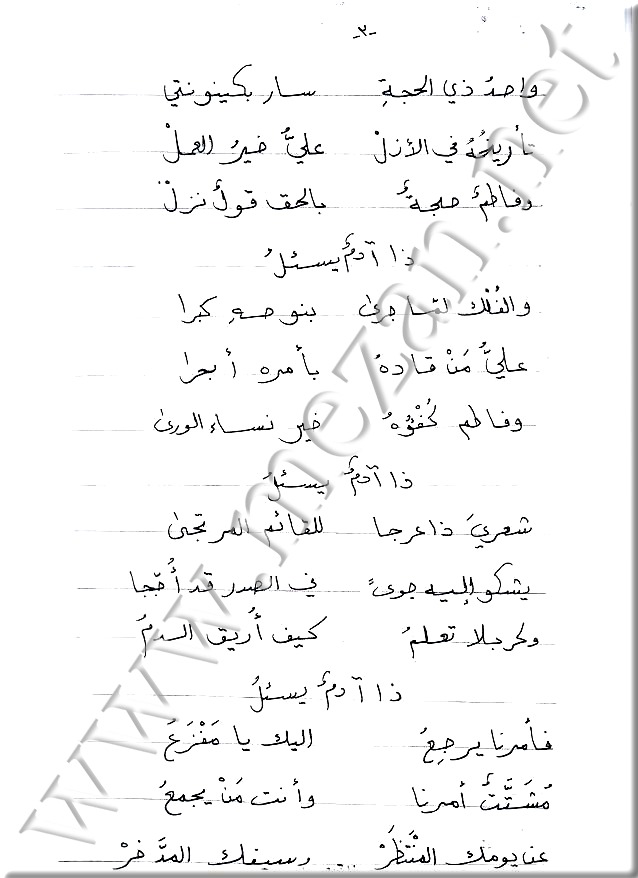 -٣-
واحدُ ذي الحجةِ سار بكينونتي
تأريخُهُ في الأزلْ عليٌّ خيرُ العملْ
وفاطمٌ حجةٌ بالحق قولٌ نزلْ
ذا آدمٌ يسئلُ
والفُلك لمّا جرىٰ بنوحهِ كبرا
عليٌّ مَنْ قادهُ بأمره أبحرا
وفاطم كُفْؤهُ خير نساء الورىٰ
ذا آدمٌ يسئلُ
شعريَ ذا عرجا للقائم المرتجىٰ
يشكو إليه جوىً في الصدر قد أُجّجا
وكربلا تعلمُ كيف أُريق الدمُ
ذا آدمٌ يسئلُ
فأمرنا يرجعُ اليك يا مَفْزَعُ
مُشَتَّتٌ أمرنا وأنت مَنْ يجمعُ
عن يومك المُنْتَظَرْ وسيفك المدَّخرْ
www.mezan.net